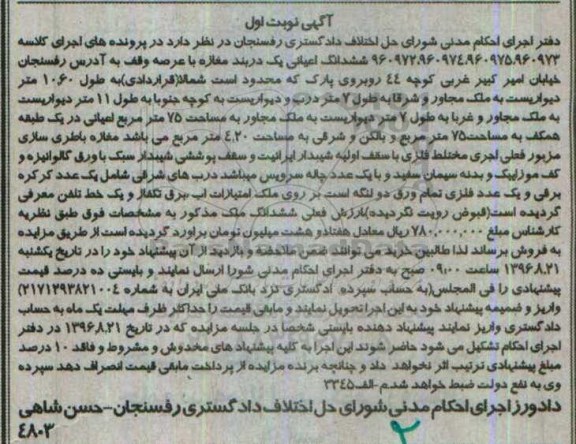 آگهی نوبت اول
دفتر اجرای احکام مدنی شورای حل اختلاف دادگستری رفسنجان در نظر دارد در پرونده های اجرای کلاسه
۹۶۰۹۷۲،۹۶۰۹۷۴،۹۶۰۹۷۵،۹۶۰۹۷۳ ششدانگ اعیانی یک دربند مغازه با عرصه وقف به آدرس رفسنجان
خیابان امیر کبیر غربی کوچه ۴۴ روبروی پارک که محدود است شمالا(قراردادی)به طول ۱۰.۶۰ متر
دیواریست به ملک مجاور و شرقا به طول ۷ متر درب و دیواریست به کوچه جنوبا به طول ۱۱ متر دیواریست
به ملک مجاور و غربا به طول ۷ متر دیواریست به ملک مجاور به مساحت ۷۵ متر مربع اعیانی در یک طبقه
همکف به مساحت۷۵ متر مربع و بالکن و شرقی به مساحت ۴.۲۰ متر مربع می باشد مغازه باطری سازی
مزبور فعلی اجری مختلط فلزی با سقف اولیه شیبدار ایرانیت و سقف پوششی شیبدار سبک با ورق گالوانیزه و
کف موزاییک و بدنه سیمان سفید و با یک عدد چاله سرویس میباشد درب های شرقی شامل یک عدد کرکره
برقی و یک عدد فلزی تمام ورق دو لنگه است بر روی ملک امتیازات اب ،برق تکفاز و یک خط تلفن معرفی
گردیده است(قبوض رویت نگردیده)ارزش فعلی ششدانگ ملک مذکور به مشخصات فوق طبق نظریه
کارشناس مبلغ ۷۸۰,۰۰۰,۰۰۰ ریال معادل هفتادو هشت میلیون تومان براورد گردیده است از طریق مزایده
به فروش برساند لذا طالبین خرید می توانند ضمن ملاحضه و بازدید از آن پیشنهاد خود را در تاریخ یکشنبه
۱۳۹۶،۸،۲۱ ساعت ۰۹:۰۰ صبح به دفتر اجرای احکام مدنی شورا ارسال نمایند و بایستی ده درصد قیمت
پیشنهادی را فی المجلس(به حساب سپرده دادگستری نزد بانک ملی ایران به شماره ۲۱۷۱۲۹۳۸۲۱۰۰۴)
واریز و ضمیمه پیشنهاد خود به این اجرا تحویل نمایند و مابقی قیمت را حداکثر ظرف مهلت یک ماه به حساب
دادگستری واریز نمایند پیشنهاد دهنده بایستی شخصا در جلسه مزایده که در تاریخ ۱۳۹۶،۸،۲۱ در دفتر
اجرای احکام تشکیل می شود حاضر شوند این اجرا به کلیه پیشنهاد های مخدوش و مشروط و فاقد ۱۰ درصد
مبلغ پیشنهادی ترتیب اثر نخواهد داد و چنانچه برنده مزایده از پرداخت مابقی قیمت انصراف دهد سپرده
وی به نفع دولت ضبط خواهد شد.م-الف۳۳۴۵
دادورز اجرای احکام مدنی شورای حل اختلاف دادگستری رفسنجان-حسن شاهی
۴۸۰۳